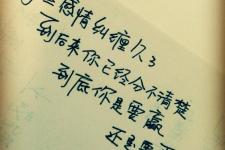 感情纠缠久了
到后来你已经分不清楚
到底你是要赢
还是要